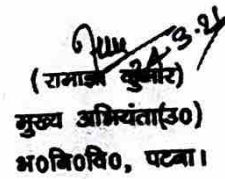 24.3.21
(रामाज्ञा कुमार)
मुख्य अभियंता(उ०)
भ०नि०वि०, पटना।